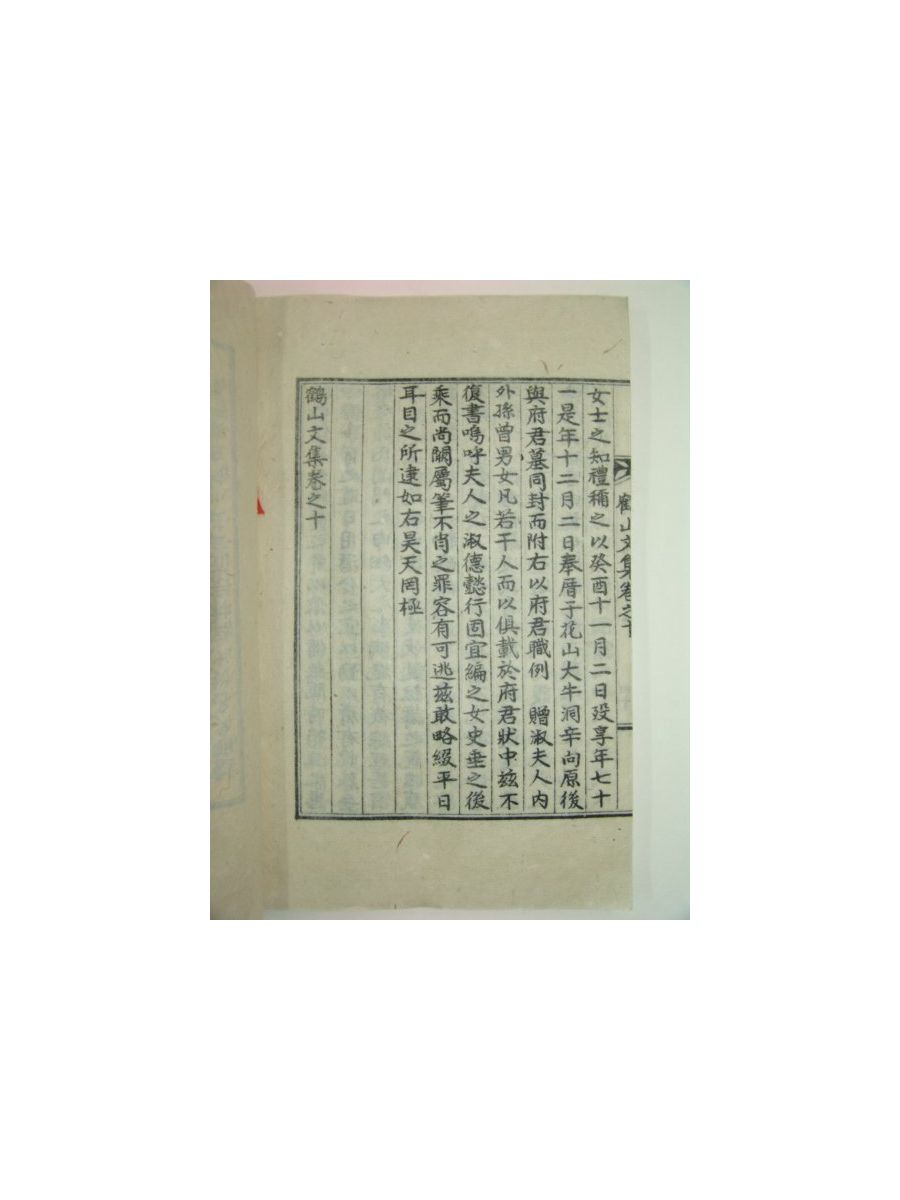 鶴山文集卷之十
女士之知禮稱之以癸酉十一月二日歿享年七十
一是年十二月二日奉厝子花山大牛洞辛向原後
與府君墓同封而附右以府君職例 贈淑夫人內
外孫曾男女凡若干人而以俱載於府君狀中玆不
復書嗚呼夫人之淑德懿行固宜編之女史垂之後
乘而尚闕屬筆不肖之罪容有可逃玆敢略綴平日
耳目之所逮如右昊天罔極
鶴山文集卷之十